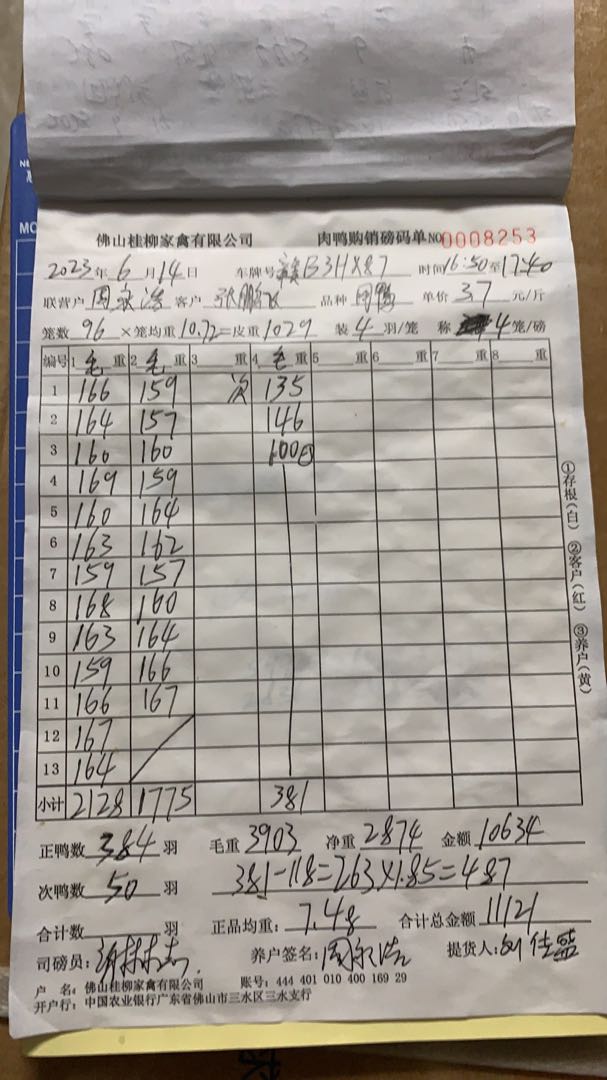 佛山桂柳家禽有限公司 肉鸭购销磅码单 NO 0008253
2023年 6月 14日 车牌号 B3HX87 时间 16:50 至 17:40
联营户 周 浩 客户 张鹏飞 品种 周鸭 单价 3.7 元/斤
笼数 96 ×笼均重 10.72 =皮重 1029 装 4 羽/笼 称 4 笼/磅
编号 1 毛 重 2 毛 重 3 重 4 毛 重 5 重 6 重 7 重 8 重
1 166 159 次 135
2 164 157 146
3 160 160 100
4 169 159
5 160 164
6 163 162
7 159 157
8 168 160
9 163 164
10 159 166
11 166 167
12 167
13 164
小计 2128 1775 381
①存根(白) ②客户(红) ③养户(黄)
正鸭数 384 羽 毛重 3903 净重 2874 金额 10634
次鸭数 50 羽 381-118=263×1.85=487
合计数 羽 正品均重: 7.48 合计总金额 11121
司磅员: 养户签名: 周 浩 提货人: 佳盛
户 名: 佛山桂柳家禽有限公司 账号: 444 401 010 400 169 29
开户行: 中国农业银行广东省佛山市三水区三水支行